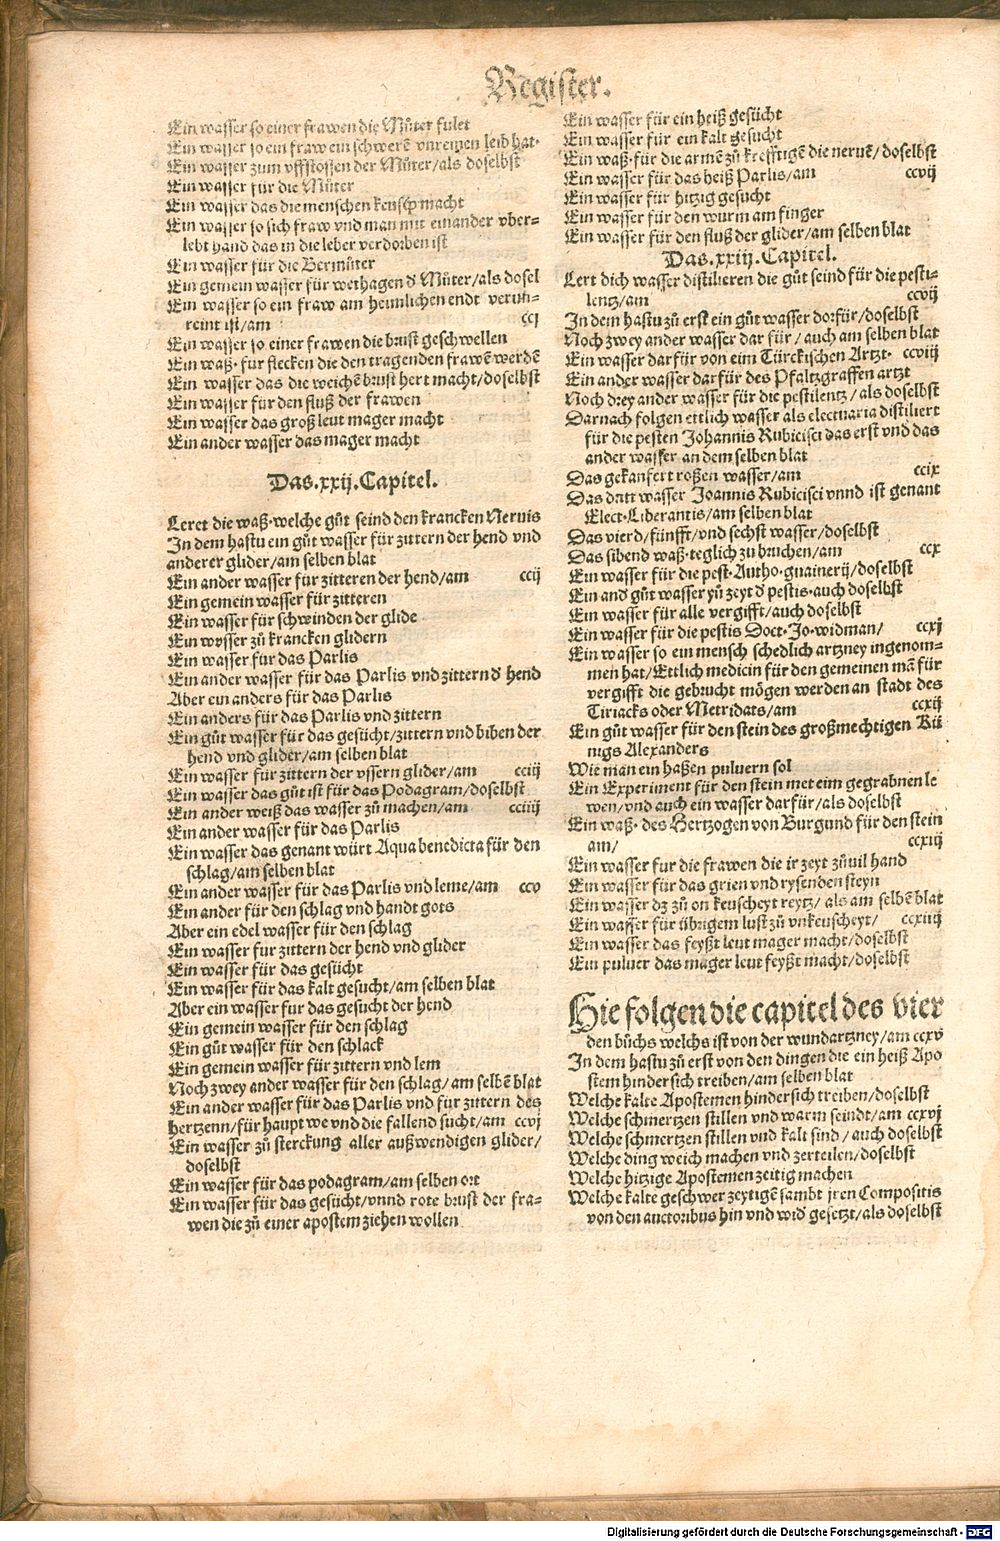 Register.
Ein wasser so einer frawen die Můter fulet
Ein wasser so ein fraw ein schwerē vnreinen leib hat·
Ein wasser zum vffstossen der Můter/als doselbst
Ein wasser für die Můter
Ein wasser das die menschen keusch macht
Ein wasser so sich fraw vnd man mit einander vber-
lebt hand das in die leber verdorben ist
Ein wasser für die Bermůter
Ein gemein wasser für wethagen d Můter/als dosel
Ein wasser so ein fraw am heimlichen endt verun-
reint ist/am ccj
Ein wasser so einer frawen die brust geschwellen
Ein waß· für flecken die den tragenden frawē werdē
Ein wasser das die weichē brust hert macht/doselbst
Ein wasser für den fluß der frawen
Ein wasser das groß leut mager macht
Ein ander wasser das mager macht
Das.xxij.Capitel.
Leret die waß·welche gůt seind den krancken Neruis
In dem hastu ein gůt wasser für zittern der hend vnd
anderer glider/am selben blat
Ein ander wasser für zitteren der hend/am ccij
Ein gemein wasser für zitteren
Ein wasser für schwinden der glide
Ein wasser zů krancken glidern
Ein wasser für das Parlis
Ein ander wasser für das Parlis vnd zittern d hend
Aber ein anders für das Parlis
Ein anders für das Parlis vnd zittern
Ein gůt wasser für das gesücht/zittern vnd biben der
hend vnd glider/am selben blat
Ein wasser für zittern der vssern glider/am cciij
Ein wasser das gůt ist für das Podagram/doselbst
Ein ander weiß das wasser zů machen/am cciiij
Ein ander wasser für das Parlis
Ein wasser das genant würt Aqua benedicta für den
schlag/am selben blat
Ein ander wasser für das Parlis vnd leme/am ccv
Ein ander für den schlag vnd handt gots
Aber ein edel wasser für den schlag
Ein wasser für zittern der hend vnd glider
Ein wasser für das gesücht
Ein wasser für das kalt gesucht/am selben blat
Aber ein wasser für das gesucht der hend
Ein gemein wasser für den schlag
Ein gůt wasser für den schlack
Ein gemein wasser für zittern vnd lem
Noch zwey ander wasser für den schlag/am selbē blat
Ein ander wasser für das Parlis vnd für zittern des
hertzenn/für haupt we vnd die fallend sucht/am ccvj
Ein wasser zů sterckung aller außwendigen glider/
doselbst
Ein wasser für das podagram/am selben ort
Ein wasser für das gesücht/vnnd rote brust der fra-
wen die zů einer apostem ziehen wollen
Ein wasser für ein heiß gesücht
Ein wasser für ein kalt gesucht
Ein waß·für die armē zů krefftigē die neruē/doselbst
Ein wasser für das heiß Parlis/am ccvij
Ein wasser für hitzig gesucht
Ein wasser für den wurm am finger
Ein wasser für den fluß der glider/am selben blat
Das.xxiij.Capitel.
Lert dich wasser distilieren die gůt seind für die pesti-
lentz/am ccvij
In dem hastu zů erst ein gůt wasser dorfür/doselbst
Noch zwey ander wasser dar für/auch am selben blat
Ein wasser darfür von eim Türckischen Artzt· ccviij
Ein ander wasser darfür des Pfaltzgraffen artzt
Noch drey ander wasser für die pestilentz/als doselbst
Darnach folgen ettlich wasser als electuaria distiliert
für die pesten Johannis Rubicisci das erst vnd das
ander wasser an dem selben blat
Das gekanfert roßen wasser/am ccix
Das drit wasser Joannis Rubicisci vnnd ist genant
Elect·Liberantis/am selben blat
Das vierd/fünfft/vnd sechst wasser/doselbst
Das sibend waß·teglich zů bruchen/am ccx
Ein wasser für die pest·Autho·guainerij/doselbst
Ein and gůt wasser yů zeyt d pestis·auch doselbst
Ein wasser für alle vergifft/auch doselbst
Ein wasser für die pestis Doct·Jo·widman/ ccxj
Ein wasser so ein mensch schedlich artzney ingenom-
men hat/Ettlich medicin für den gemeinen mā für
vergifft die gebrucht mögen werden an stadt des
Tiriacks oder Metridats/am ccxij
Ein gůt wasser für den stein des großmechtigen Kü
nigs Alexanders
Wie man ein haßen puluern sol
Ein Experiment für den stein met eim gegrabnen le
wen/vnd auch ein wasser darfür/als doselbst
Ein waß· des Hertzogen von Burgund für den stein
am/ ccxiij
Ein wasser für die frawen die ir zeyt zůuil hand
Ein wasser für das grien vnd rysenden steyn
Ein wasser dz zů on keuscheyt reytz/ als am selbē blat
Ein wasser für übrigem lust zů vnkeuscheyt/ ccxiiij
Ein wasser das feyßt leut mager macht/doselbst
Ein puluer das mager leut feyßt macht/doselbst
Hie folgen die capitel des vier
den bůchs welchs ist von der wundartzney/am ccxv
In dem hastu zů erst von den dingen die ein heiß Apo
stem hindersich treiben/am selben blat
Welche kalte Apostemen hindersich treiben/doselbst
Welche schmertzen stillen vnd warm seindt/am ccxvj
Welche schmertzen stillen vnd kalt sind/auch doselbst
Welche ding weich machen vnd zerteilen/doselbst
Welche hitzige Apostemen zeitig machen
Welche kalte geschwer zeytigē sambt jren Compositis
von den auctoribus hin vnd wid gesetzt/als doselbst
Digitalisierung gefördert durch die Deutsche Forschungsgemeinschaft - DFG